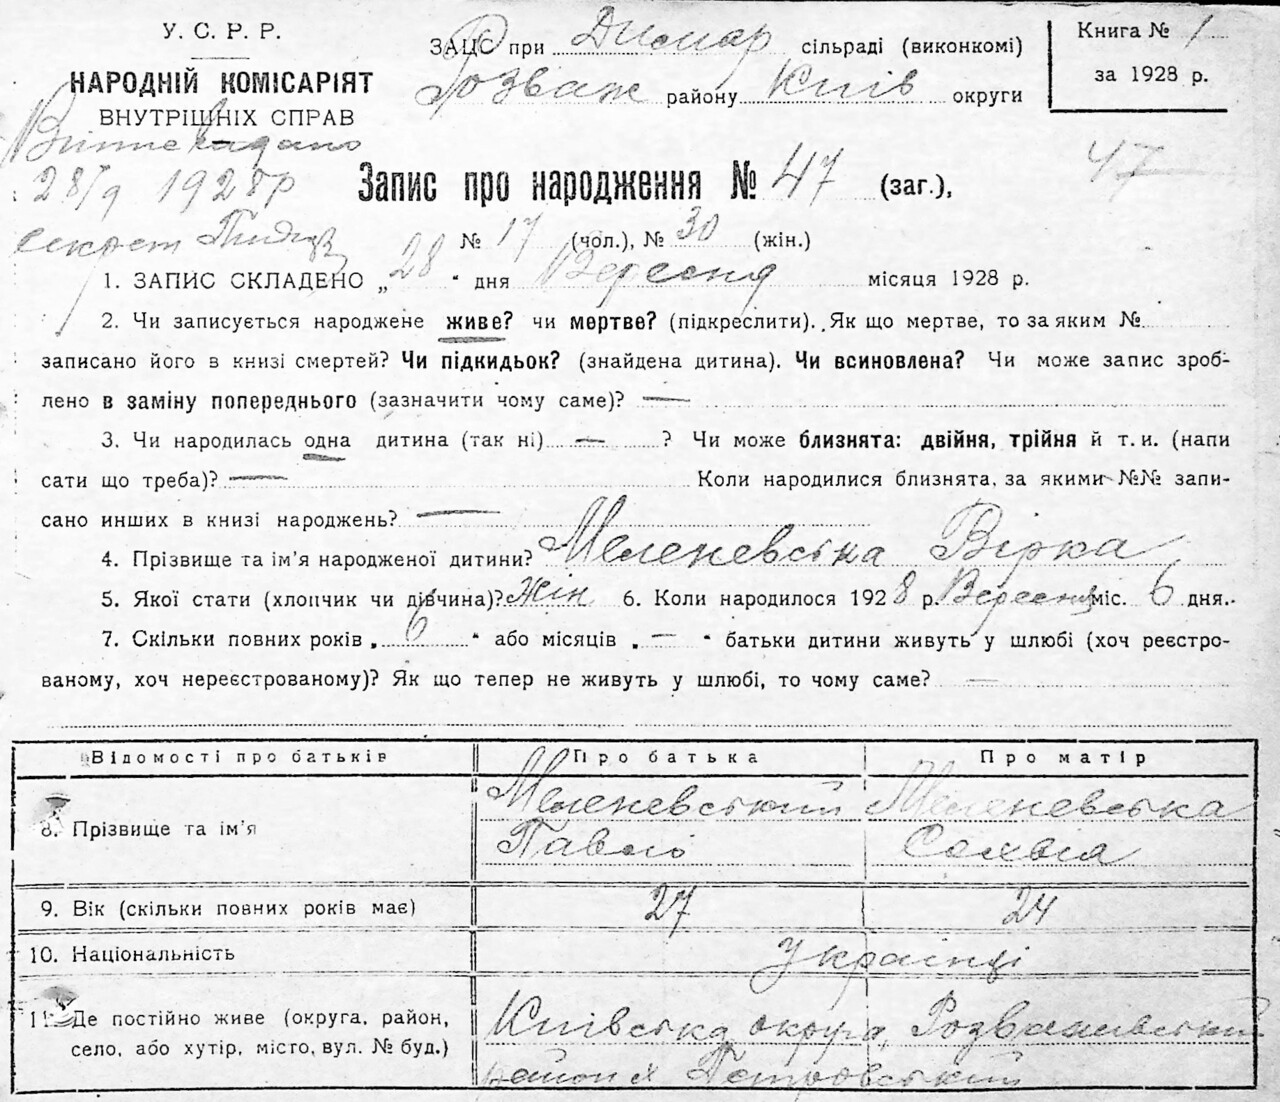 У. С. Р. Р.
НАРОДНІЙ КОМІСАРІЯТ
ВНУТРІШНІХ СПРАВ
ЗАЦС при Димар сільраді (виконкомі)
Розваж району Київ округи
Книга № 1
за 1928 р.
28/9 1928 р
секрет
47
Запис про народження № 47 (заг.),
№ 17 (чол.), № 30 (жін.)
1. ЗАПИС СКЛАДЕНО „28 " дня Вересня місяця 1928 р.
2. Чи записується народжене живе? чи мертве? (підкреслити). Як що мертве, то за яким №
записано його в книзі смертей? Чи підкидьок? (знайдена дитина). Чи всиновлена? Чи може запис зроб-
лено в заміну попереднього (зазначити чому саме)? —
3. Чи народилась одна дитина (так ні) — ? Чи може близнята: двійня, трійня й т. и. (напи
сати що треба)? — Коли народилися близнята, за якими №№ запи-
сано инших в книзі народжень? —
4. Прізвище та ім'я народженої дитини? Меленевська Вірка
5. Якої стати (хлопчик чи дівчина)? Жін 6. Коли народилося 1928 р. Вересня міс. 6 дня.
7. Скільки повних років „ 6 " або місяців „ — " батьки дитини живуть у шлюбі (хоч реєстро-
ваному, хоч нереєстрованому)? Як що тепер не живуть у шлюбі, то чому саме? —
Відомості про батьків Про батька Про матір
8. Прізвище та ім'я Меленевський Павло Меленевська Сохвія
9. Вік (скільки повних років має) 27 24
10. Національність Українці
11. Де постійно живе (округа, район, Київська округа, Розважевський
село, або хутір, місто, вул. № буд.) район х Петровський